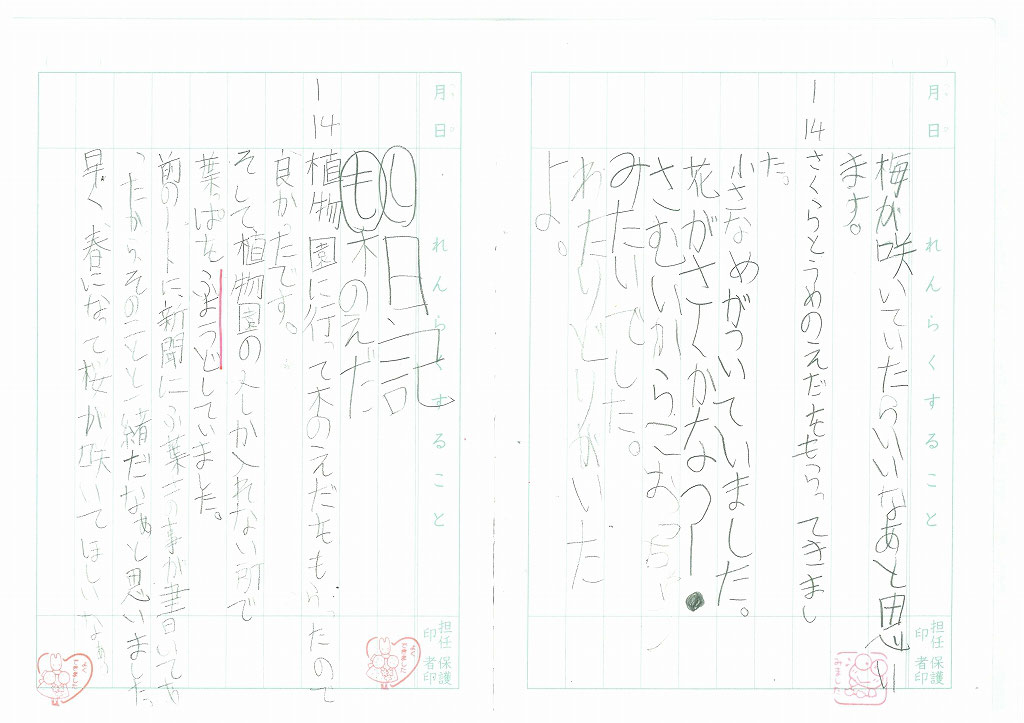 月 日 れんらくすること 担任印 保護者印
梅が咲いていたらいいなあと思い
ます。
1 14 さくらとうめのえだをもらってきまし
た。
小さなめがついていました。
花がさくかなつー
さむいからこおっちゃう
みたいでした。
わたりどりがいた
よ。
月 日 れんらくすること 担任印 保護者印
日記
も 木のえだ
1 14 植物園に行って木のえだをもらったので
良かったです。
そして、植物園の人しか入れない所で
葉っぱをふようどしていました。
前のノートに、新聞にふ葉土の事が書いてあ
ったからそのことと一緒だなぁと思いました。
早く、春になって桜が咲いてほしいなぁ。